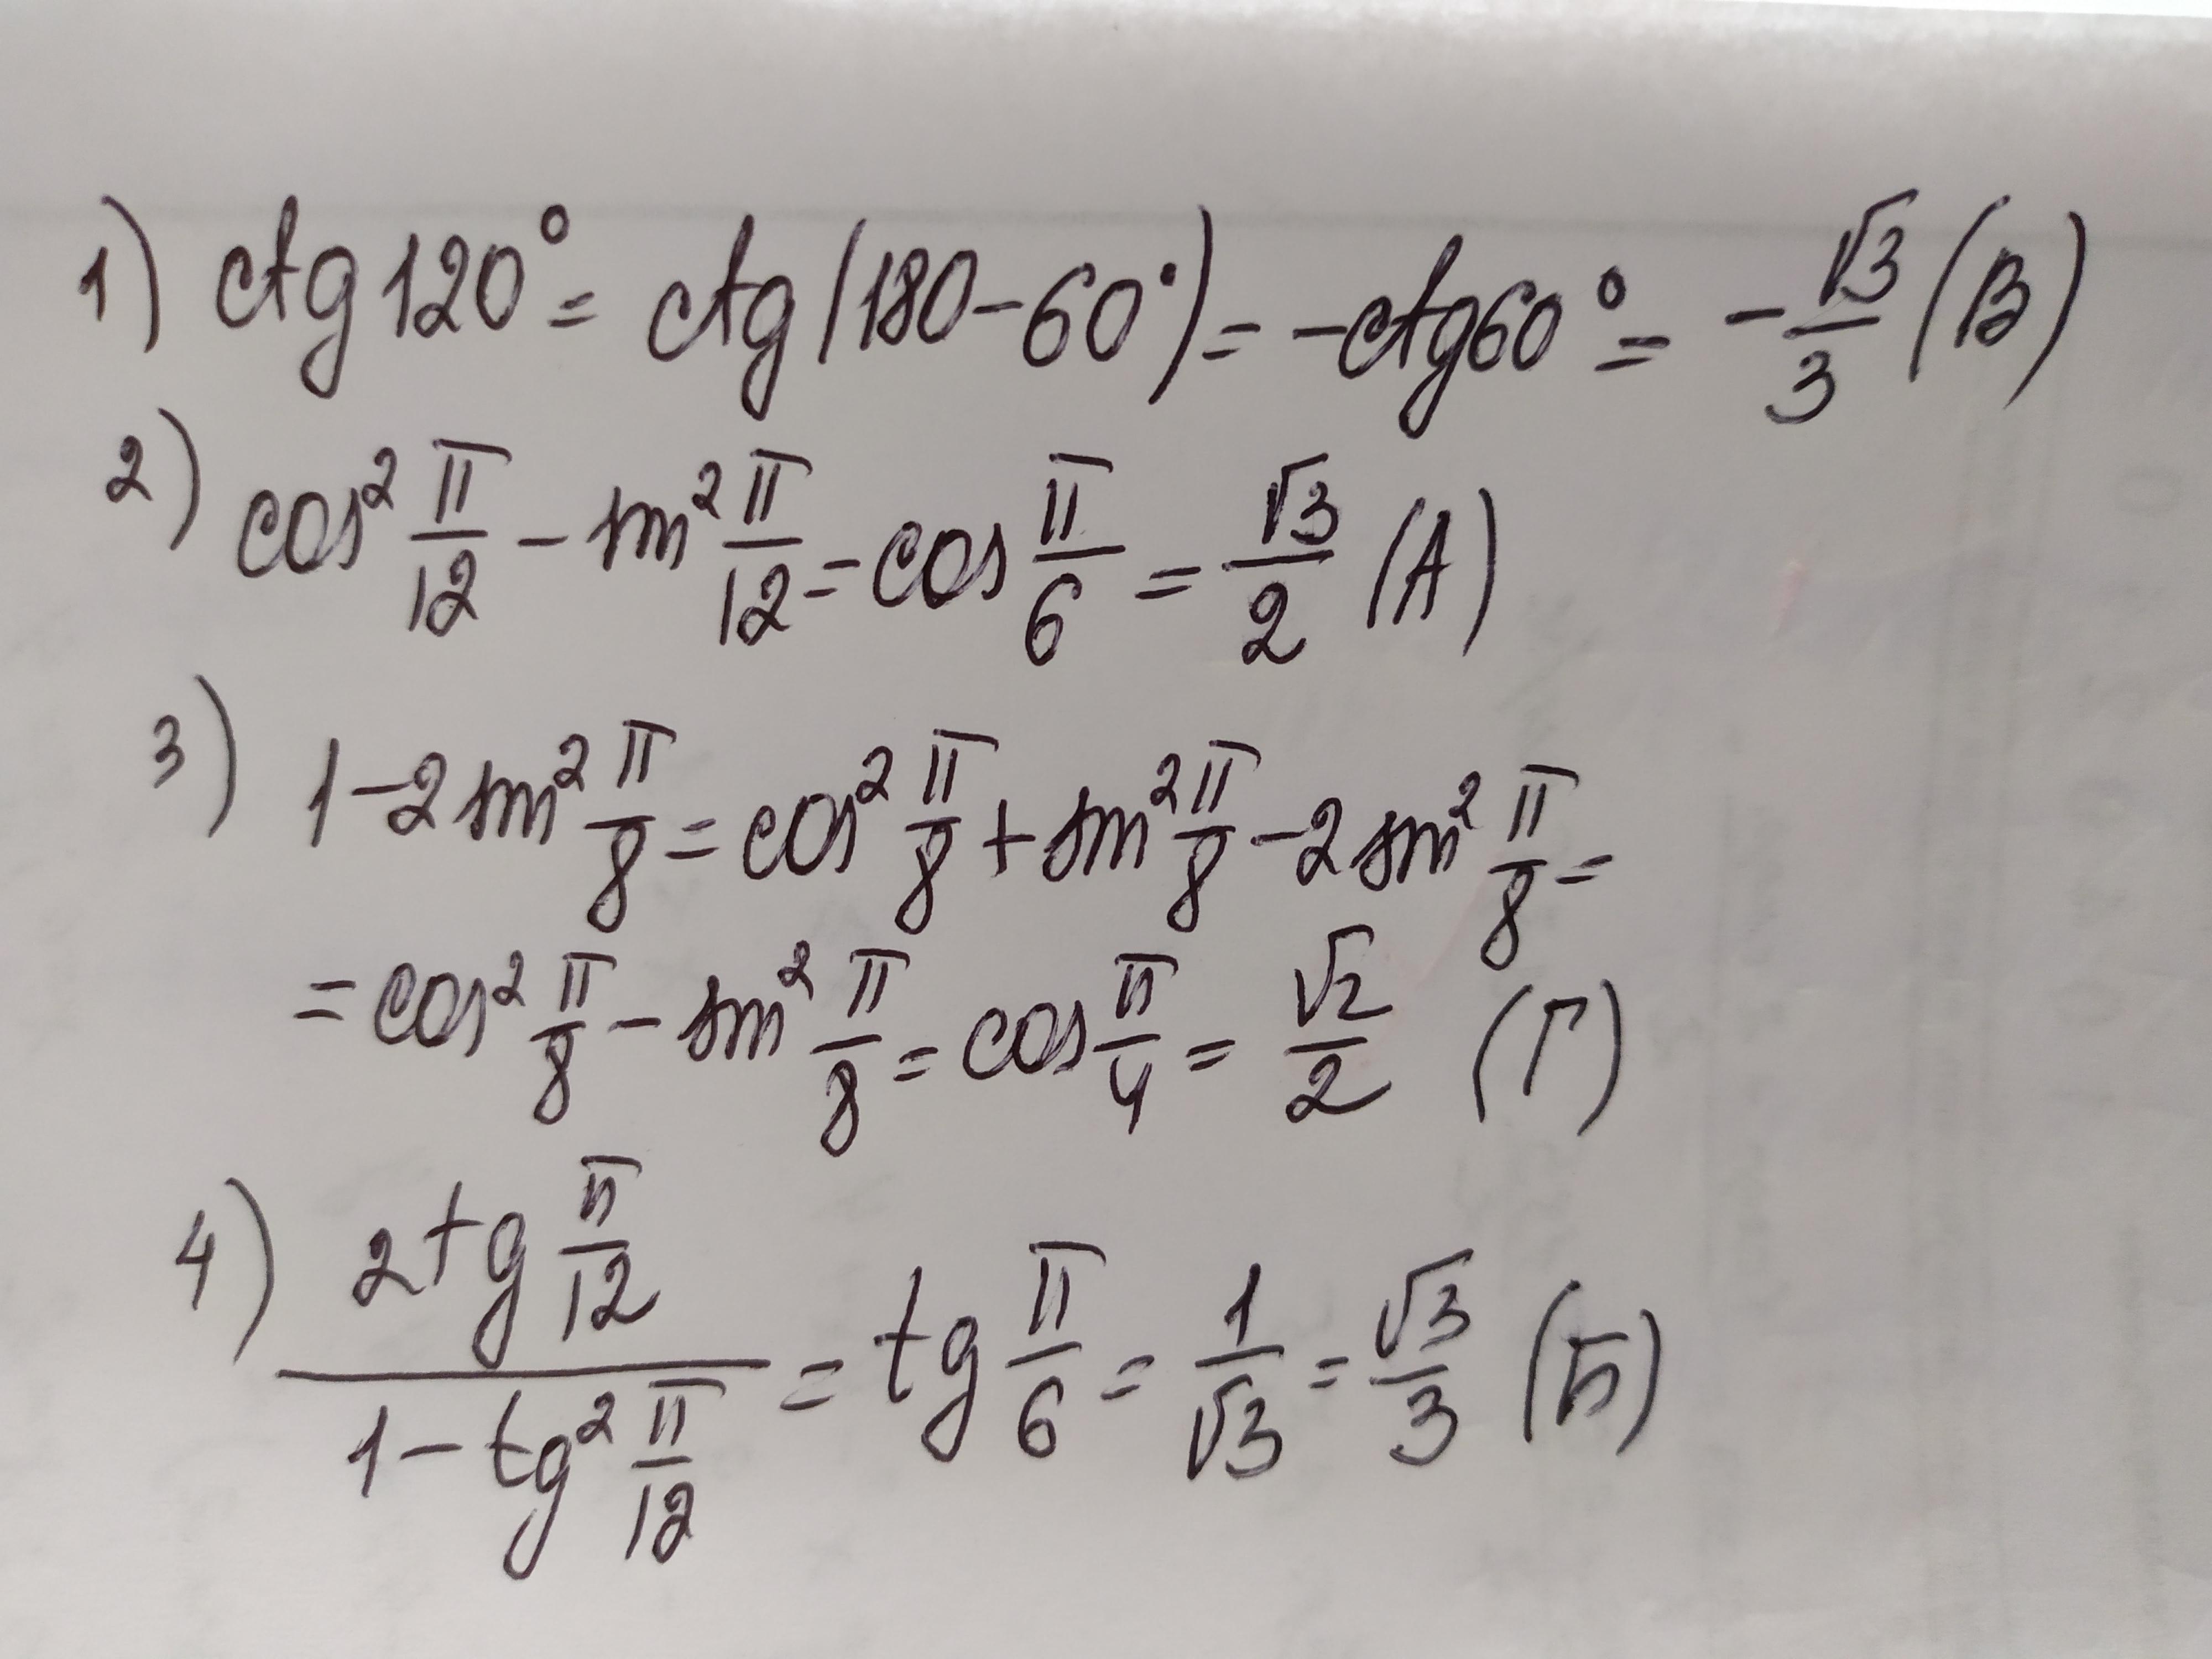 1) ctg 120° = ctg (180 - 60°) = -ctg 60° = -√3/3 (В)
2) cos² π/12 - sin² π/12 = cos π/6 = √3/2 (А)
3) 1 - 2 sin² π/8 = cos² π/8 + sin² π/8 - 2 sin² π/8 =
= cos² π/8 - sin² π/8 = cos π/4 = √2/2 (Г)
4) (2 tg π/12)/(1 - tg² π/12) = tg π/6 = 1/√3 = √3/3 (Б)